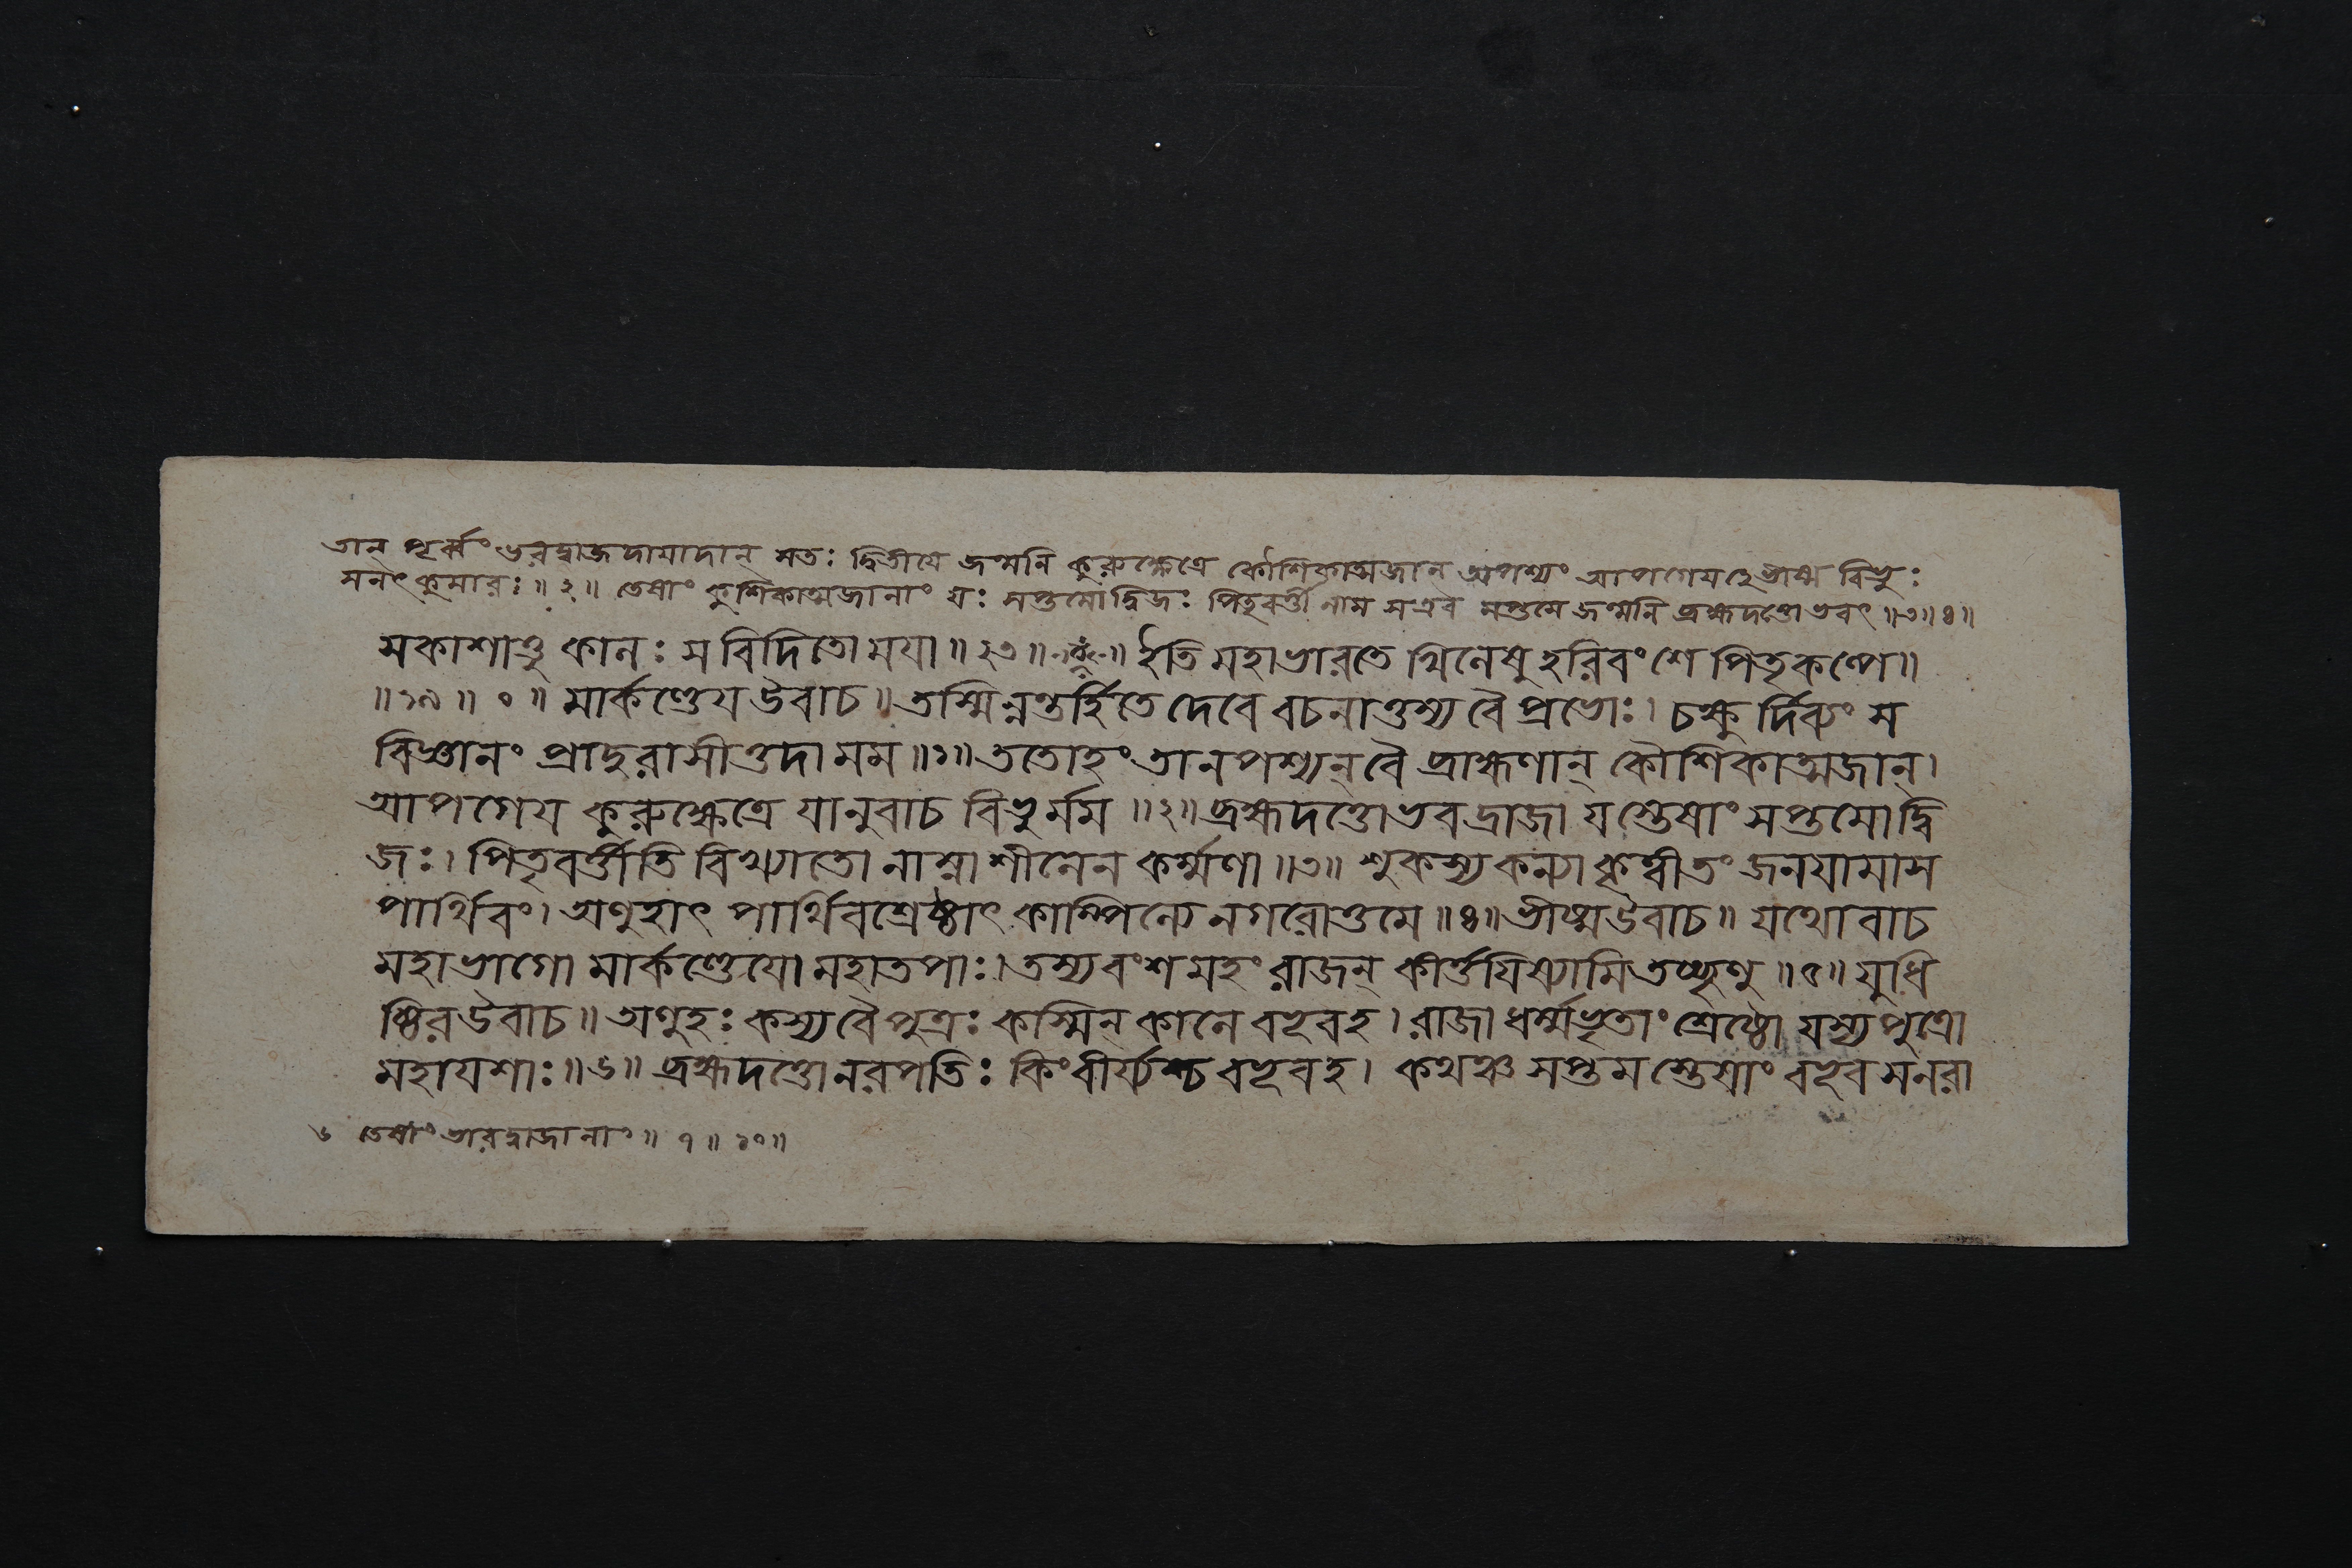 তান্ পূর্ব্বং ভরদ্বাজদায়াদান্ সতঃ দ্বিতীয়ে জন্মনি কুরুক্ষেত্রে কৌশিকাত্মজান্ অপশ্যং আপগেয় হেভীষ্ম বিভুঃ
সনৎকুমারঃ॥২॥ তেষাং কুশিকাত্মজানাং যঃ সপ্তমোদ্বিজঃ পিতৃবর্ত্তী নাম সএব সপ্তমে জন্মনি ব্রহ্মদত্তোভবৎ॥৩॥৪॥
সকাশাত্তু কালঃ স বিদিতো ময়া॥২৩॥ ইতি মহাভারতে খিলেষু হরিবংশে পিতৃকল্পে॥
॥১৯॥০॥ মার্কণ্ডেয় উবাচ॥ তস্মিন্নন্তর্হিতে দেবে বচনাত্তস্য বৈ প্রভোঃ। চক্ষুর্দিব্যং স
বিজ্ঞানং প্রাদুরাসীত্তদা মম॥১॥ ততোহং তানপশ্যন্ বৈ ব্রাহ্মণান্ কৌশিকাত্মজান্।
আপগেয় কুরুক্ষেত্রে যানুবাচ বিভুর্মম॥২॥ ব্রহ্মদত্তোভবদ্রাজা যস্তেষাং সপ্তমো দ্বি
জঃ। পিতৃবর্ত্তীতি বিখ্যাতো নাম্না শীলেন কর্ম্মণা॥৩॥ শুকস্য কন্যা কৃত্বী তং জনয়ামাস
পার্থিবং। অণুহাৎ পার্থিবশ্রেষ্ঠাৎ কাম্পিল্যে নগরোত্তমে॥৪॥ ভীষ্মউবাচ॥ যথোবাচ
মহাভাগো মার্কণ্ডেয়ো মহাতপাঃ। তস্যবংশমহং রাজন্ কীর্ত্তয়িষ্যামি তচ্ছৃণু॥৫॥ যুধি
ষ্ঠিরউবাচ॥ অণুহঃ কস্য বৈ পুত্রঃ কস্মিন্ কালে বভূবহ। রাজা ধর্ম্মভৃতাং শ্রেষ্ঠো যস্য পুত্রো
মহাযশাঃ॥৬॥ ব্রহ্মদত্তো নরপতিঃ কিংবীর্য্যশ্চ বভূবহ। কথঞ্চ সপ্তমস্তেষাং বভূব সনরা
৬ তেষাং ভারদ্বাজানাং॥৭॥১০॥